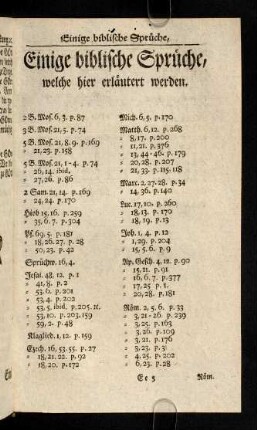 Einige biblische Sprüche,
Einige biblische Sprüche,
welche hier erläutert werden.
2 B. Mos. 6, 3. p. 87
3 B. Mos. 21, 5. p. 74
5 B. Mos. 21, 8. 9. p. 169
" 21, 23. p. 158
5 B. Mos. 21, 1-4. p. 74
" 26, 14. ibid.
" 27, 26. p. 86
2 Sam. 21, 14. p. 169
" 24, 24. p. 170
Hiob 15, 16. p. 259
" 35, 6. 7. p. 504
Ps. 69, 5. p. 181
" 18, 26. 27. p. 28
" 50, 23. p. 42
Sprüchw. 16, 4.
Jesai. 48, 12. p. 1
" 41, 8. p. 2
" 53, 12. p. 201
" 53, 4. p. 202
" 53, 5. ibid. p. 205. ii.
" 53, 10. p. 203. 159
" 59, 2. p. 48
Klaglied. 1, 12. p. 159
Ezech. 16, 53. 55. p. 27
" 18, 21. 22. p. 92
" 18, 20. p. 172
Mich. 6, 5. p. 170
Matth. 6, 12. p. 268
" 8, 17. p. 200
" 11, 21. p. 376
" 13, 44-46. p. 179
" 20, 28. p. 207
" 21, 33. p. 115. 118
Marc. 2, 27-28. p. 34
" 14, 36. p. 140
Luc. 17, 10. p. 260
" 18, 13. p. 170
" 18, 19. p. 13
Joh. 1, 4. p. 12
" 1, 29. p. 204
" 15, 5. 6. p. 9
Ap. Gesch. 4, 12. p. 90
" 15, 11. p. 91
" 16, 6. 7. p. 377
" 17, 25. p. 1.
" 20, 28. p. 181
Röm. 2, 5. 6. p. 33
" 3, 21-26. p. 239
" 3, 25. p. 163
" 3, 26. p. 109
" 3, 21. p. 176
" 3, 23. p. 3
" 4, 25. p. 202
" 6, 23. p. 28
Ee 5
Röm.